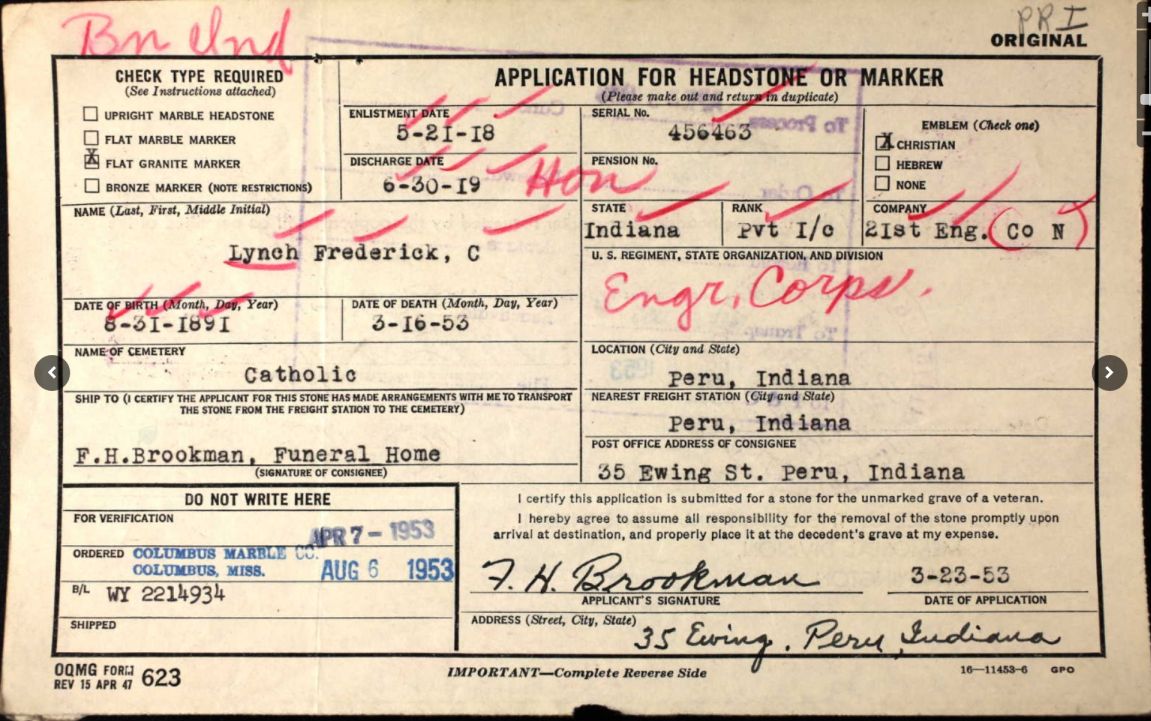 Bn Ind
PRI
ORIGINAL
CHECK TYPE REQUIRED
(See Instructions attached)
UPRIGHT MARBLE HEADSTONE
FLAT MARBLE MARKER
X FLAT GRANITE MARKER
BRONZE MARKER (NOTE RESTRICTIONS)
APPLICATION FOR HEADSTONE OR MARKER
(Please make out and return in duplicate)
ENLISTMENT DATE
5-21-18
DISCHARGE DATE
6-30-19 Hon
SERIAL No.
456463
PENSION No.
EMBLEM (Check one)
X CHRISTIAN
HEBREW
NONE
NAME (Last, First, Middle Initial)
Lynch Frederick, C
STATE
Indiana
RANK
Pvt I/c
COMPANY
21st Eng. (Co N)
U. S. REGIMENT, STATE ORGANIZATION, AND DIVISION
Engr. Corps.
DATE OF BIRTH (Month, Day, Year)
8-31-1891
DATE OF DEATH (Month, Day, Year)
3-16-53
NAME OF CEMETERY
Catholic
LOCATION (City and State)
Peru, Indiana
SHIP TO (I CERTIFY THE APPLICANT FOR THIS STONE HAS MADE ARRANGEMENTS WITH ME TO TRANSPORT
THE STONE FROM THE FREIGHT STATION TO THE CEMETERY)
F.H.Brookman, Funeral Home
(SIGNATURE OF CONSIGNEE)
NEAREST FREIGHT STATION (City and State)
Peru, Indiana
POST OFFICE ADDRESS OF CONSIGNEE
35 Ewing St. Peru, Indiana
DO NOT WRITE HERE
FOR VERIFICATION
APR 7 - 1953
ORDERED COLUMBUS MARBLE CO.
COLUMBUS, MISS. AUG 6 1953
B/L WY 2214934
SHIPPED
I certify this application is submitted for a stone for the unmarked grave of a veteran.
I hereby agree to assume all responsibility for the removal of the stone promptly upon
arrival at destination, and properly place it at the decedent's grave at my expense.
F. H. Brookman 3-23-53
APPLICANT'S SIGNATURE DATE OF APPLICATION
ADDRESS (Street, City, State)
35 Ewing. Peru, Indiana
OQMG FORM
REV 15 APR 47 623
IMPORTANT—Complete Reverse Side
16—11453-6 GPO